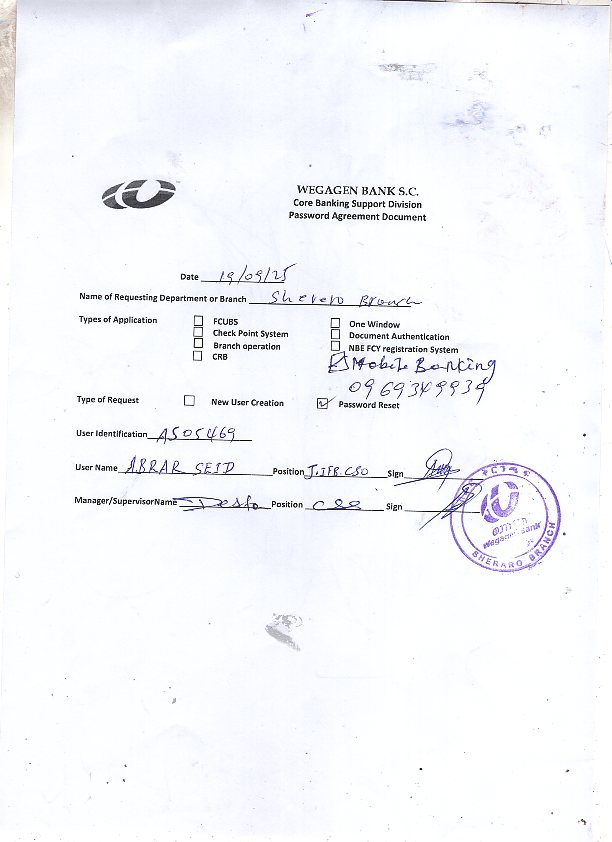 WEGAGEN BANK S.C.
Core Banking Support Division
Password Agreement Document
Date 19/09/25
Name of Requesting Department or Branch Sheraro Branch
Types of Application
FCUBS
Check Point System
Branch operation
CRB
One Window
Document Authentication
NBE FCY registration System
Mobile Banking
0969349939
Type of Request New User Creation Password Reset
User Identification AS05469
User Name ABRAR SEID Position J.IFB.CSO Sign
Manager/SupervisorName Position Sign
Wegagen Bank
SHERARO BRANCH